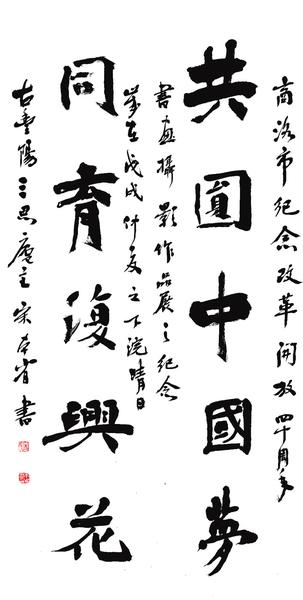 商洛市纪念改革開放四十周年
共圓中國夢
書画攝影作品展之纪念
歲在戊戌仲夏之下浣晴日
同育復興花
古豐陽三思廬主宋本省書